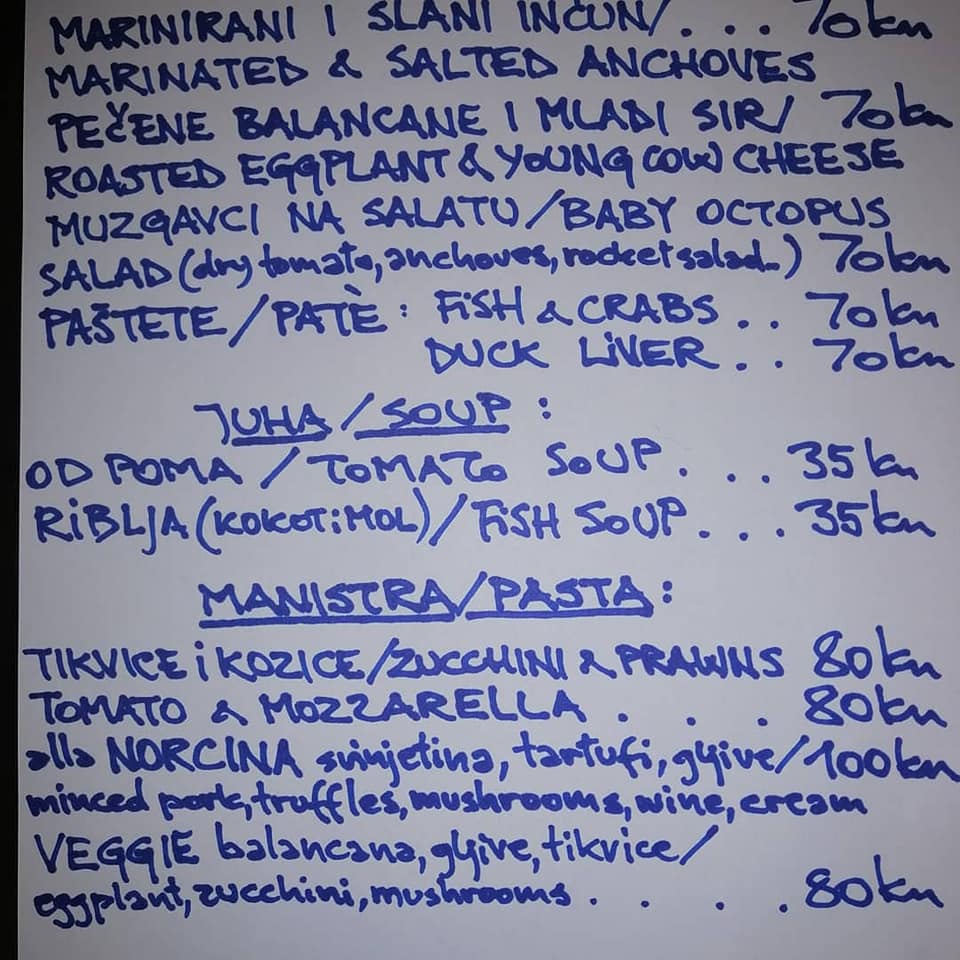 MARINIRANI I SLANI INĆUN/. . . 70kn
MARINATED & SALTED ANCHOVES
PEČENE BALANCANE I MLADI SIR/ 70kn
ROASTED EGGPLANT & YOUNG COW CHEESE
MUZGAVCI NA SALATU/BABY OCTOPUS
SALAD (dry tomato, anchoves, rocket salad..) 70kn
PAŠTETE/PATÈ: FiSH & CRABS . . 70kn
DUCK LiVER . . 70kn
JUHA/SOUP :
OD POMA / TOMATO SOUP. . . . 35kn
RiBLJA (KOKOT i MOL)/FiSH SOUP. . . . 35kn
MANISTRA/PASTA:
TIKVICE i KOZICE/ZUCCHINI & PRAWNS 80kn
TOMATO & MOZZARELLA . . . 80kn
alla NORCINA svinjetina, tartufi, gljive/100kn
minced pork, truffles, mushrooms, wine, cream
VEGGIE balancana, gljive, tikvice/
eggplant, zucchini, mushrooms . . . . 80kn